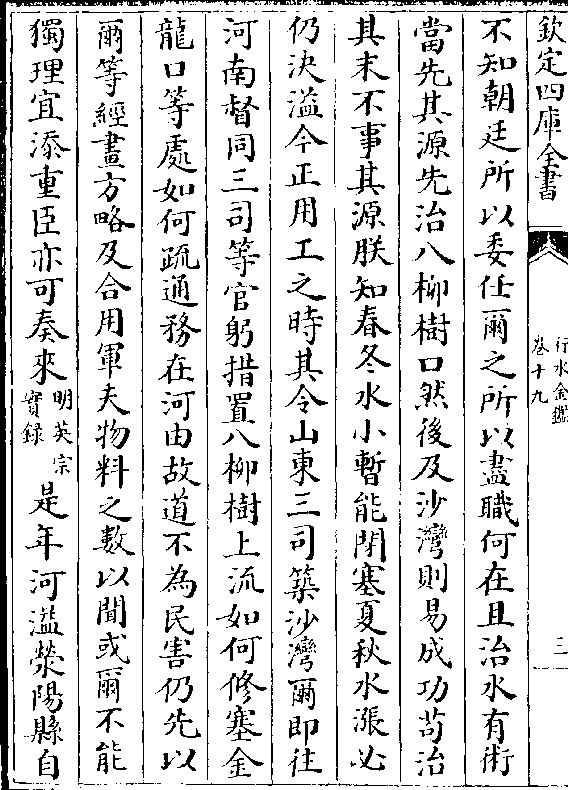 欽定四庫全書
行水金鑑
卷十九
三
不知朝廷所以委任爾之所以盡職何在且治水有術
當先其源先治八柳樹口然後及沙灣則易成功苟治
其末不事其源朕知春冬水小暫能閉塞夏秋水漲必
仍決溢今正用工之時其令山東三司築沙灣爾即往
河南督同三司等官躬措置八柳樹上流如何修塞金
龍口等處如何疏通務在河由故道不為民害仍先以
爾等經畫方略及合用軍夫物料之數以聞或爾不能
獨理宜添重臣亦可奏來明英宗實錄是年河溢滎陽縣自